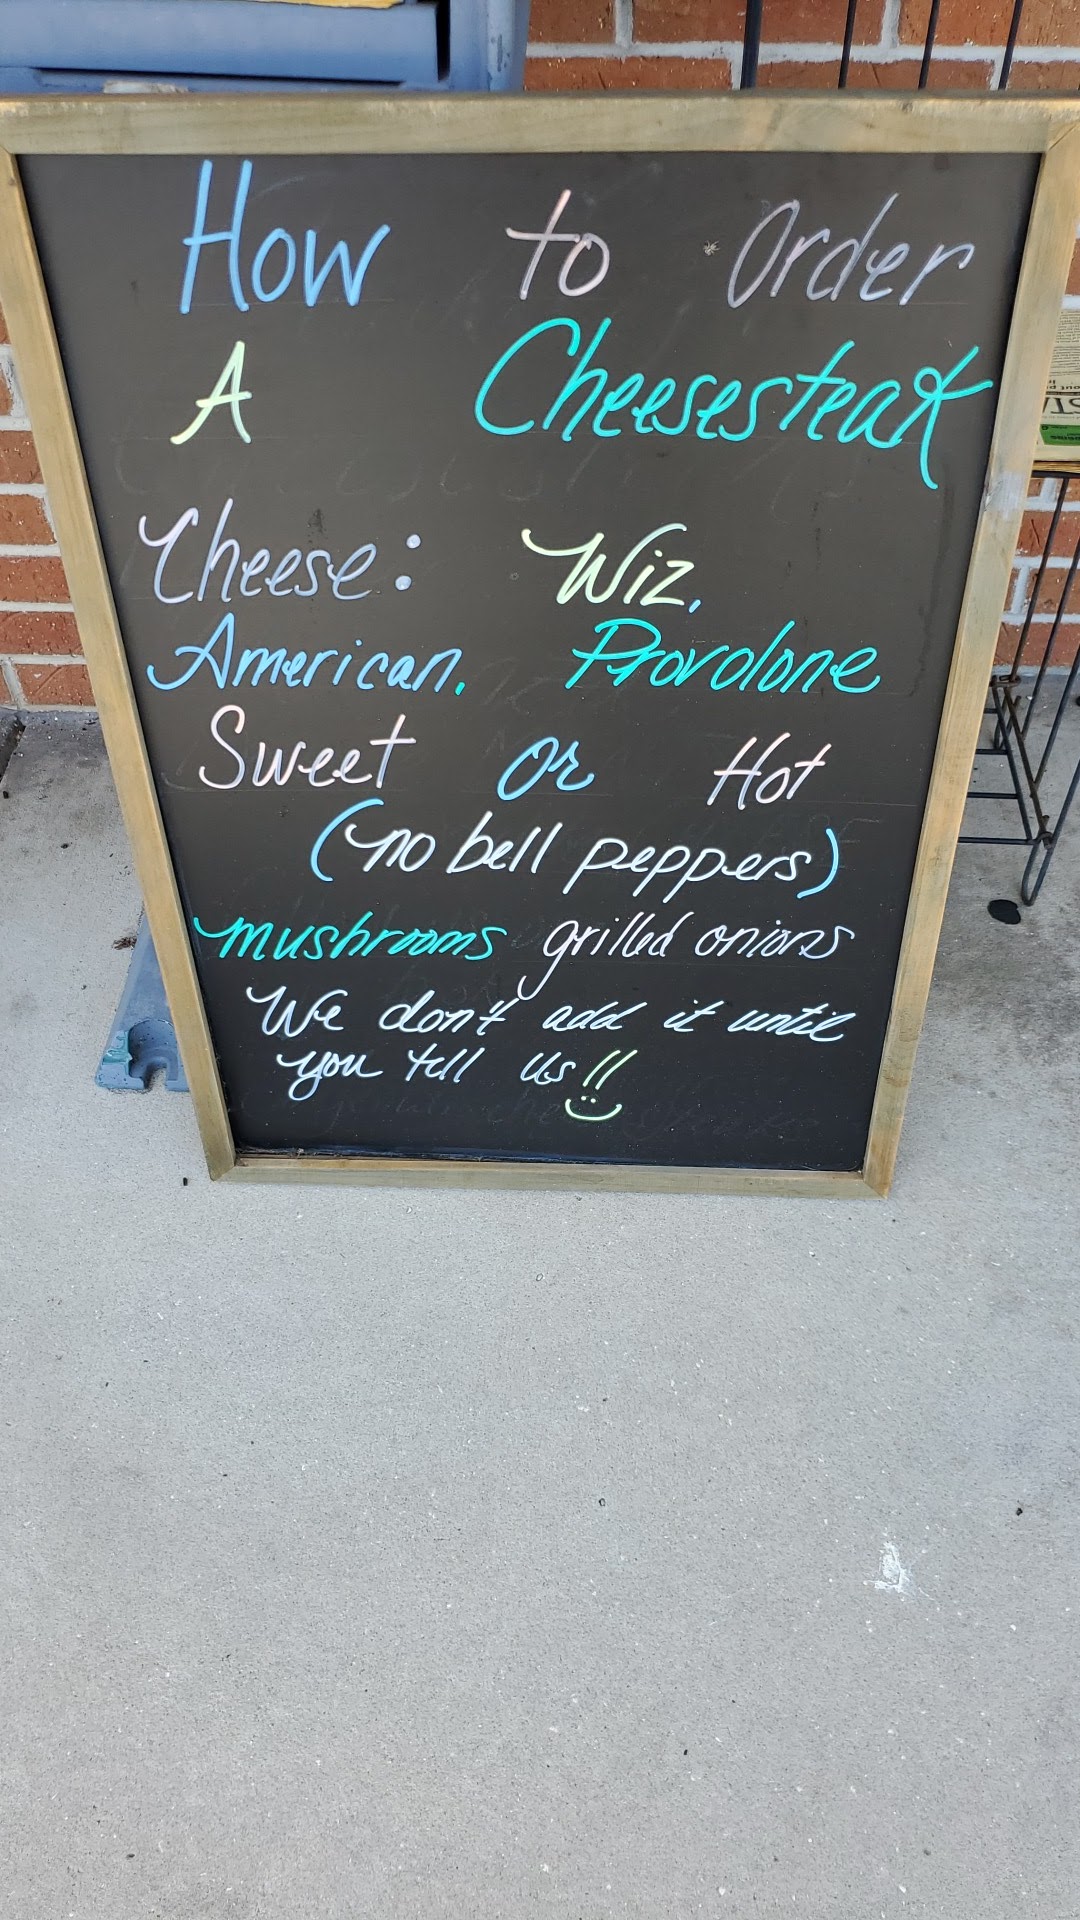 How to Order
A Cheesesteak
Cheese: Wiz,
American, Provolone
Sweet or Hot
(no bell peppers)
mushrooms grilled onions
We don't add it until
you tell us!!